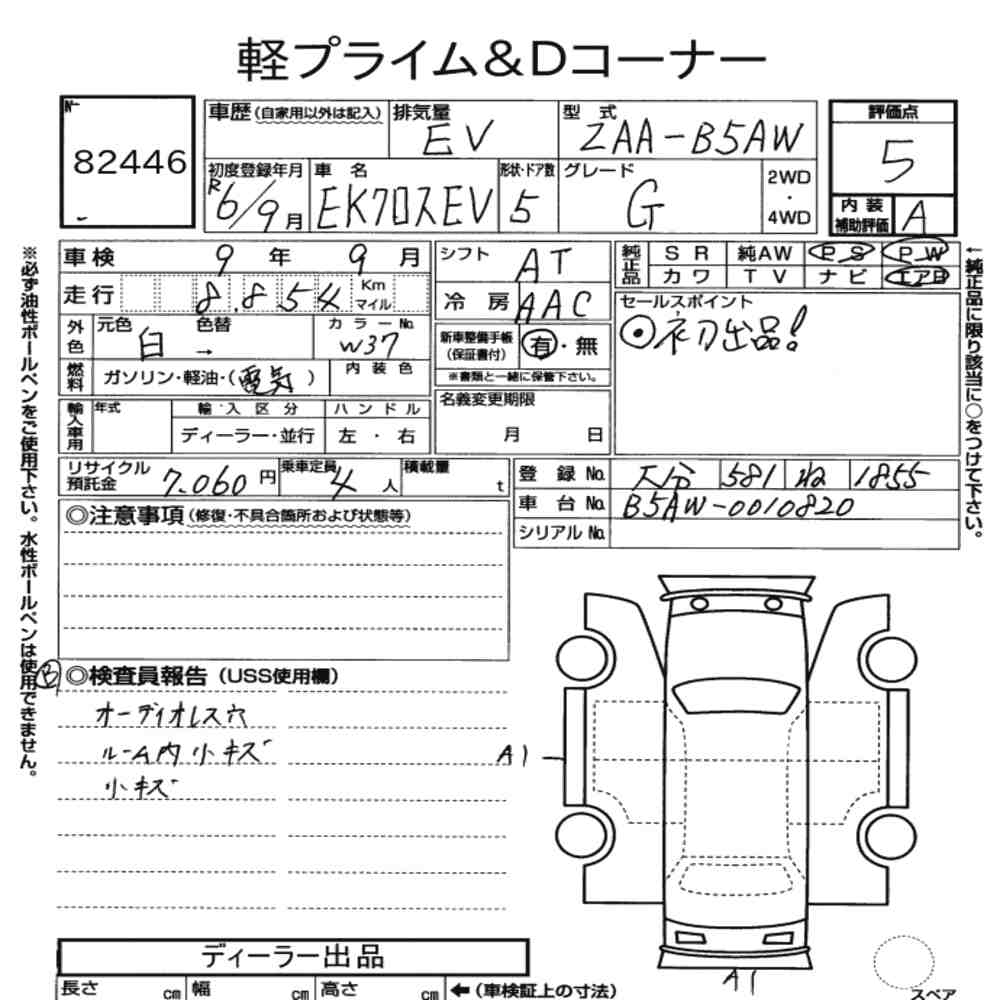 軽プライム＆Dコーナー
No.
82446
車歴(自家用以外は記入) 排気量 EV 型式 ZAA-B5AW
評価点 5
内装補助評価 A
初度登録年月 R6/9月 車名 EKクロスEV 形状・ドア数 5 グレード G 2WD・4WD
車検 9年 9月 シフト AT
走行 8.854 Km マイル 冷房 AAC
純正品 SR 純AW PS PW
カワ TV ナビ エアB
セールスポイント
⦿初出品!
外色 元色 白 色替 → カラーNo. W37
新車整備手帳(保証書付) 有・無
※書類と一緒に保管下さい。
燃料 ガソリン・軽油・(電気) 内装色
名義変更期限
月 日
輸入車用 年式 輸入区分 ハンドル
ディーラー・並行 左・右
リサイクル預託金 7.060円 乗車定員 4人 積載量 t
登録No. 大分 581 ね 1855
車台No. B5AW-0010820
シリアルNo.
◎注意事項(修復・不具合箇所および状態等)
Ⓑ ◎検査員報告(USS使用欄)
オーディオレス穴
ルーム内小キズ
小キズ
A1
A1
スペア
ディーラー出品
長さ cm 幅 cm 高さ cm ←(車検証上の寸法)
※必ず油性ボールペンをご使用下さい。水性ボールペンは使用できません。
←純正品に限り該当に○をつけて下さい。